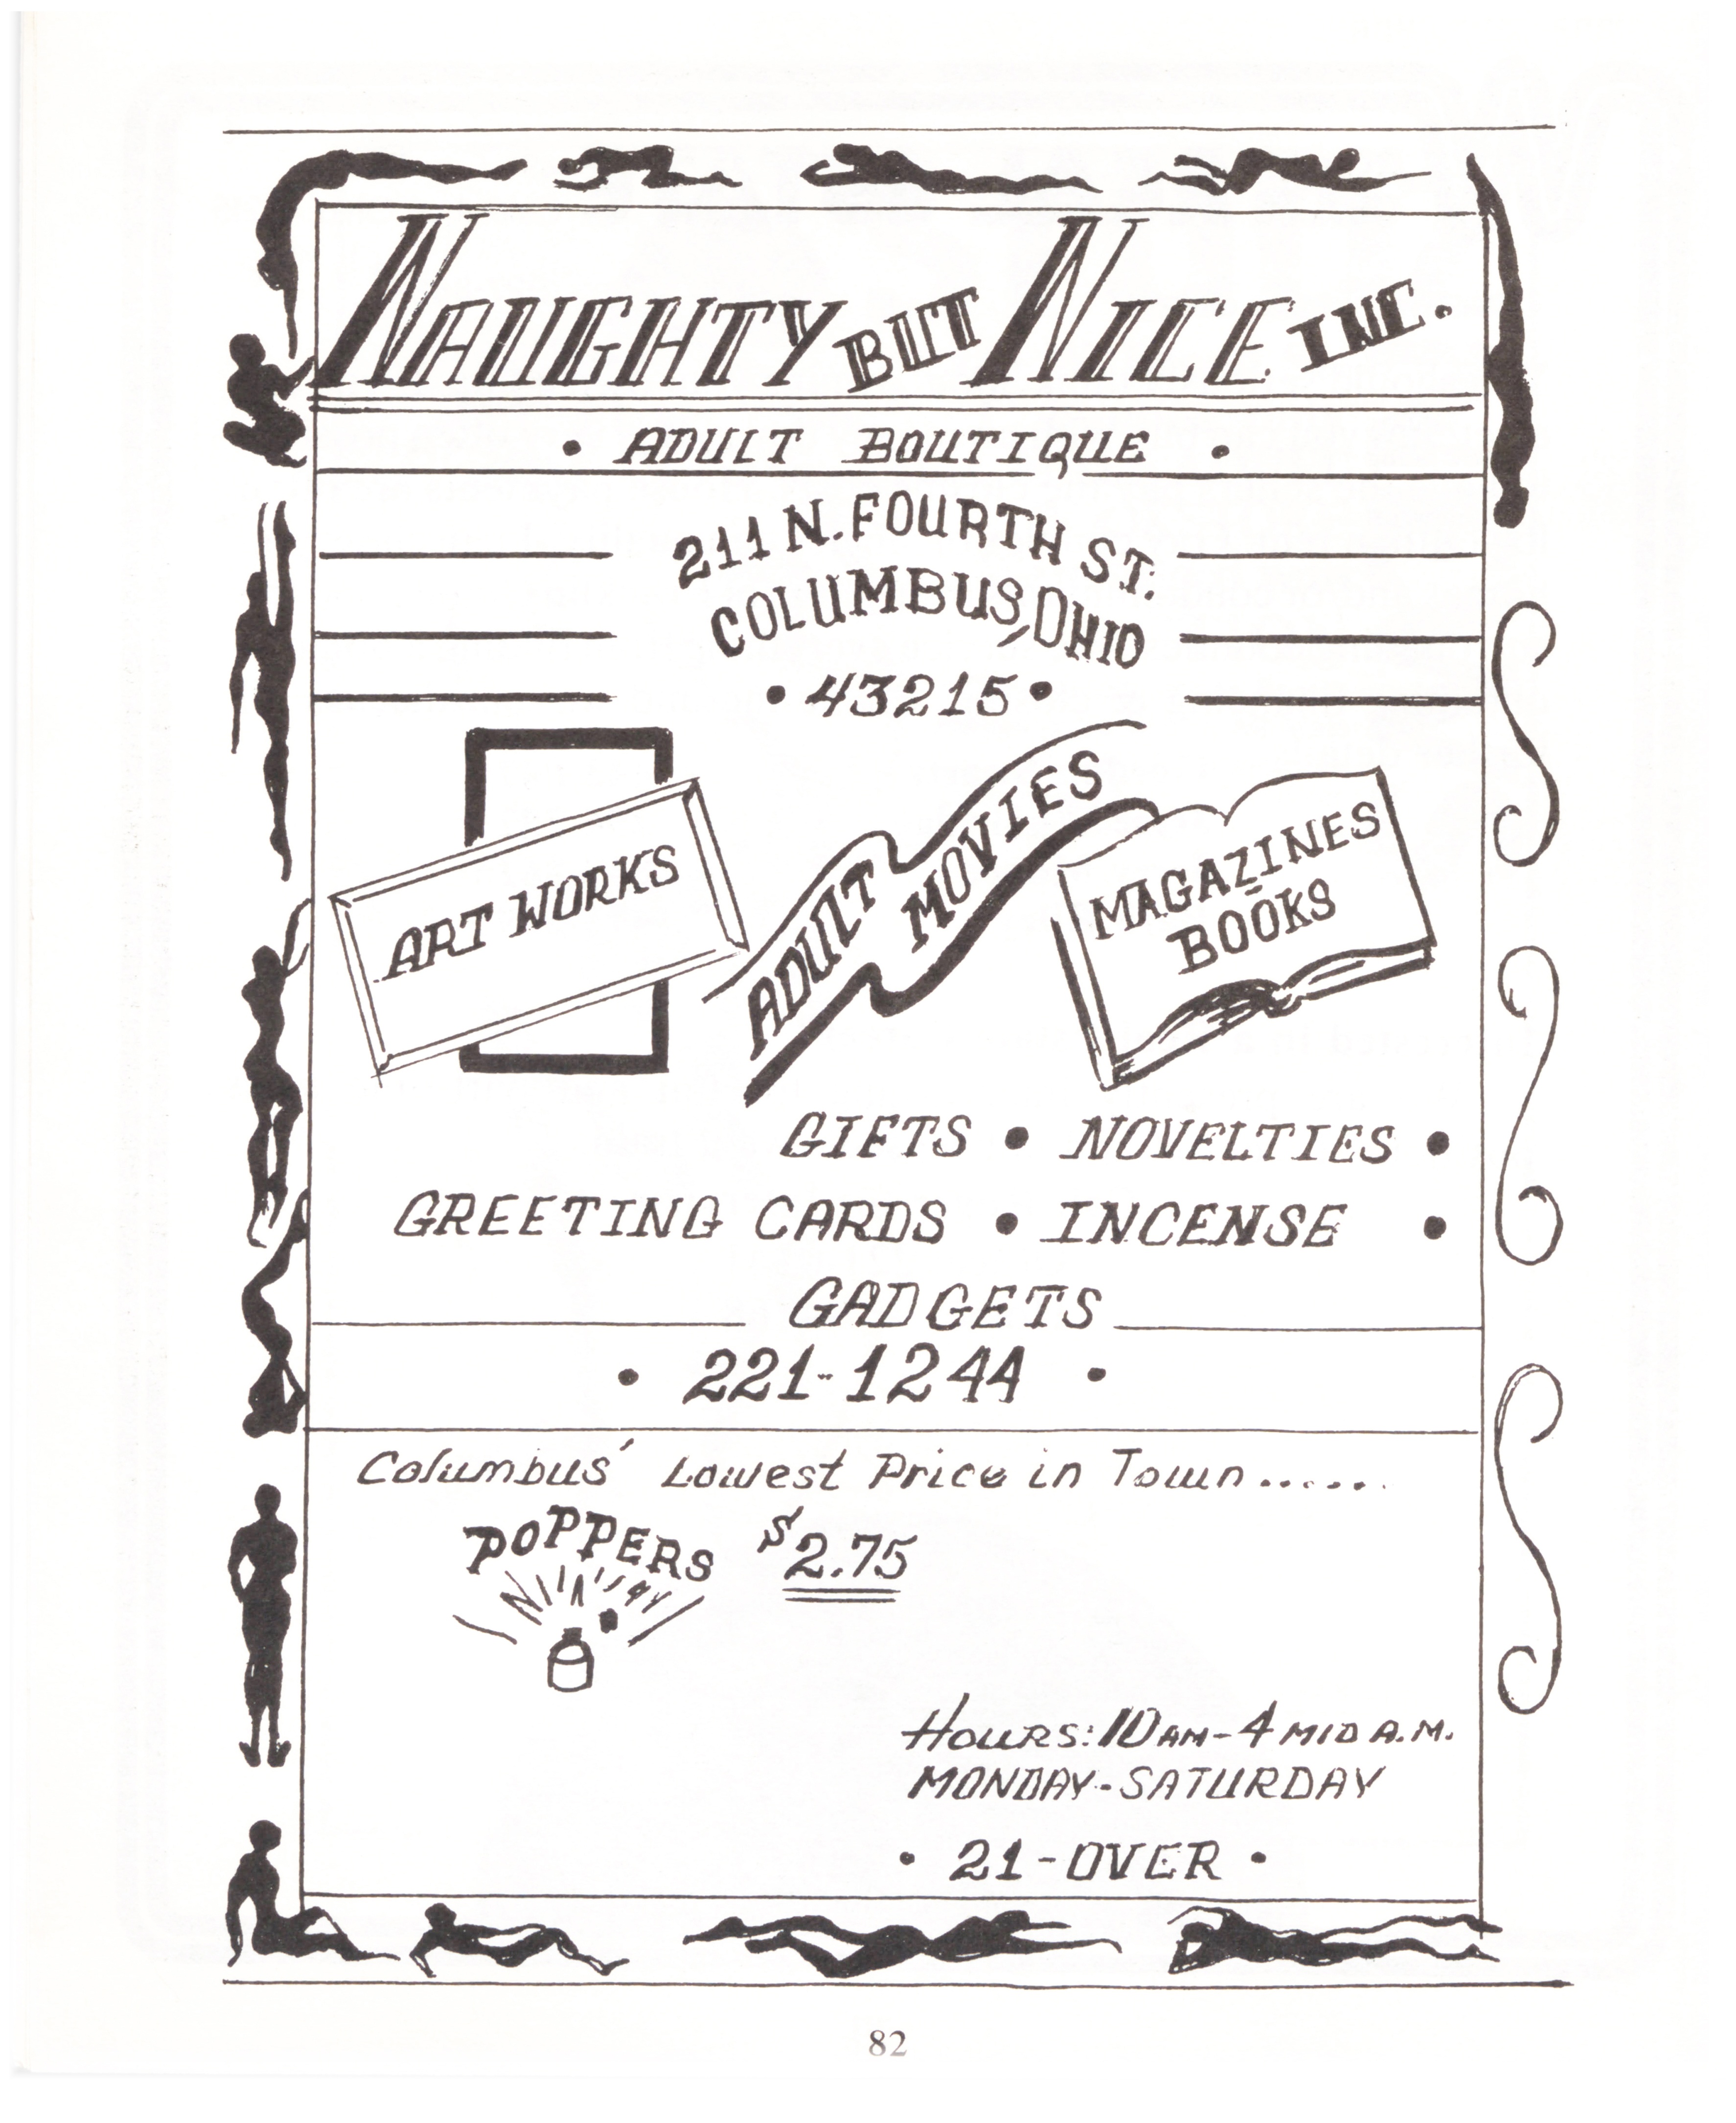 NAUGHTY BUT NICE INC.
• ADULT BOUTIQUE •
211 N. FOURTH ST.
COLUMBUS, OHIO
• 43215 •
ART WORKS
ADULT MOVIES
MAGAZINES
BOOKS
GIFTS • NOVELTIES •
GREETING CARDS • INCENSE •
GADGETS
• 221-1244 •
Columbus' Lowest Price in Town......
POPPERS $2.75
HOURS: 10 AM - 4 MID A.M.
MONDAY - SATURDAY
• 21 - OVER •
82